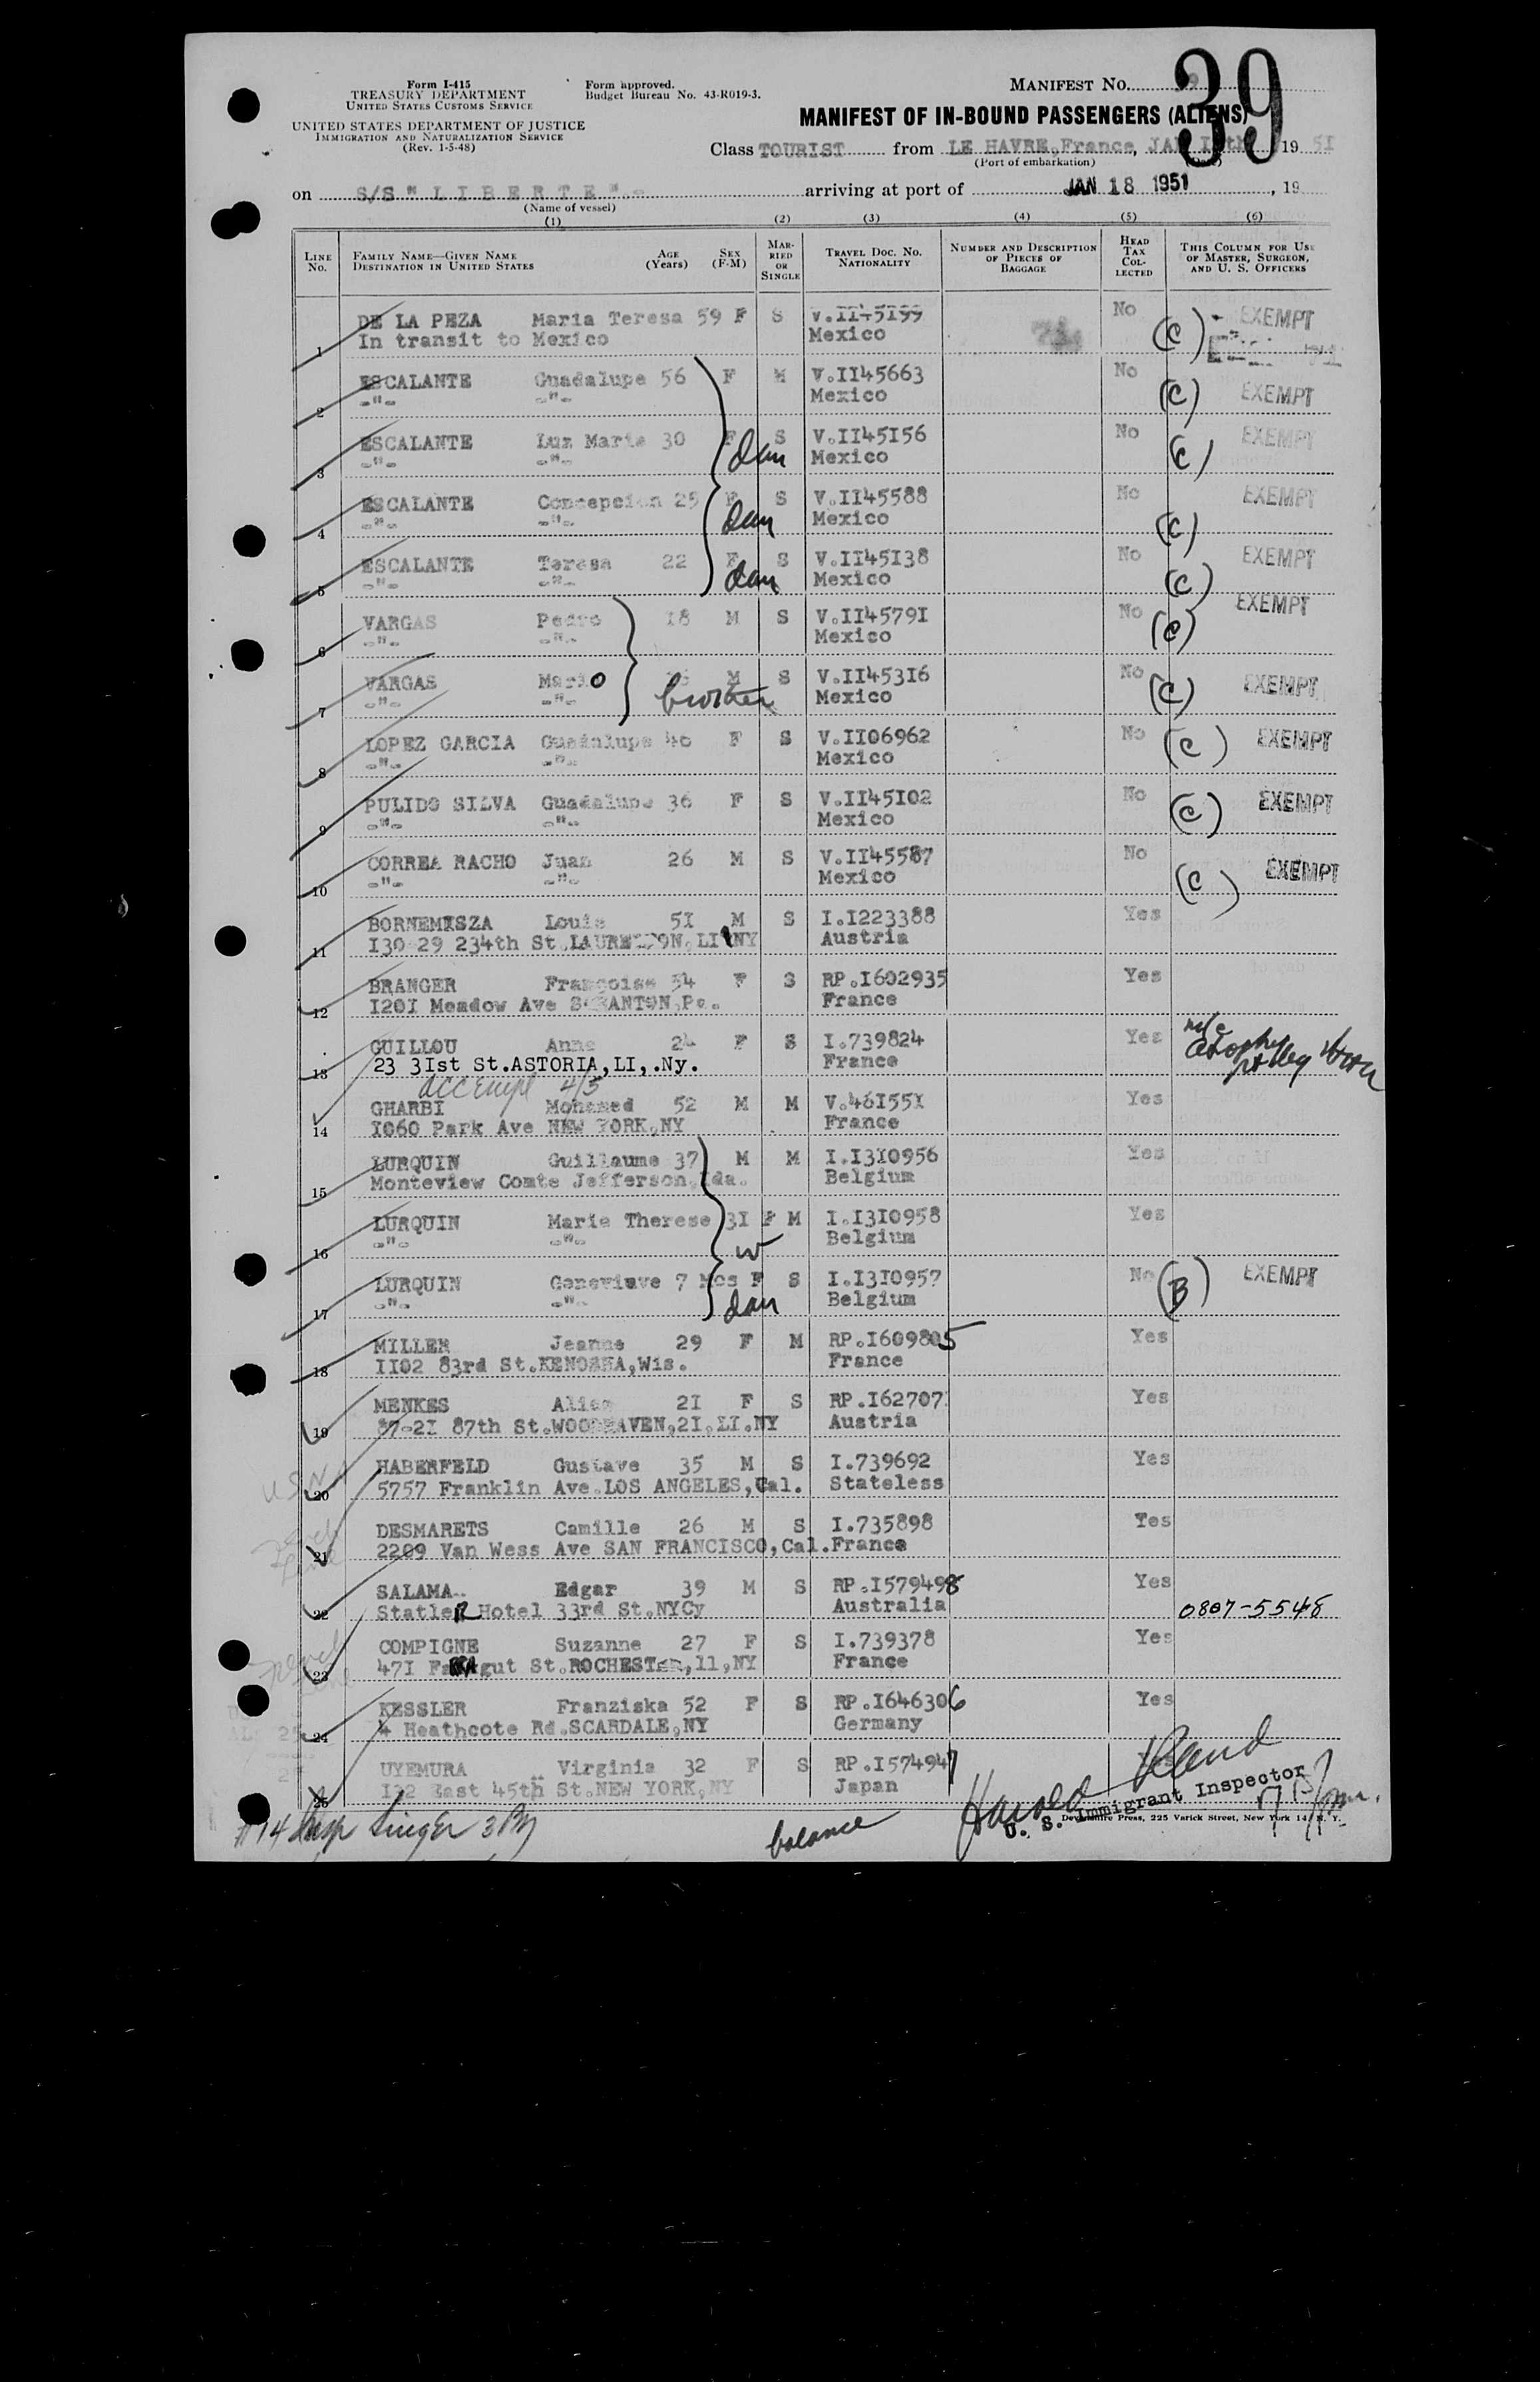 Form I-415
TREASURY DEPARTMENT
UNITED STATES CUSTOMS SERVICE
UNITED STATES DEPARTMENT OF JUSTICE
IMMIGRATION AND NATURALIZATION SERVICE
(Rev. 1-5-48)
Form approved.
Budget Bureau No. 43-R019-3.
MANIFEST No. 39
MANIFEST OF IN-BOUND PASSENGERS (ALIENS)
Class TOURIST from LE HAVRE,France, JAN 1951
(Port of embarkation)
on S/S " L I B E R T E ".- arriving at port of JAN 18 1951, 19
(Name of vessel)
(1) (2) (3) (4) (5) (6)
LINE No. FAMILY NAME—GIVEN NAME DESTINATION IN UNITED STATES AGE (Years) SEX (F-M) MARRIED OR SINGLE TRAVEL DOC. NO. NATIONALITY NUMBER AND DESCRIPTION OF PIECES OF BAGGAGE HEAD TAX COLLECTED THIS COLUMN FOR USE OF MASTER, SURGEON, AND U. S. OFFICERS
DE LA PEZA Maria Teresa 59 F S V.II45I99 No (C) EXEMPT
1 In transit to Mexico Mexico
ESCALANTE Guadalupe 56 F M V.II45663 No (C) EXEMPT
2 -"- -"- Mexico
ESCALANTE Luz Maria 30 F S V.II45I56 No (C) EXEMPT
3 -"- -"- dau Mexico
ESCALANTE Concepcion 25 F S V.II45588 No (C) EXEMPT
4 -"- -"- dau Mexico
ESCALANTE Teresa 22 F S V.II45I38 No (C) EXEMPT
5 -"- -"- dau Mexico
VARGAS Pedro I8 M S V.II4579I No (C) EXEMPT
6 -"- -"- Mexico
VARGAS Mario M S V.II453I6 No (C) EXEMPT
7 -"- -"- brother Mexico
LOPEZ GARCIA Guadalupe 40 F S V.II06962 No (C) EXEMPT
8 -"- -"- Mexico
PULIDO SILVA Guadalupe 36 F S V.II45I02 No (C) EXEMPT
9 -"- -"- Mexico
CORREA RACHO Juan 26 M S V.II45587 No (C) EXEMPT
10 -"- -"- Mexico
BORNEMISZA Louis 5I M S I.I223388 Yes
11 I30-29 234th St.LAURELTON,LI NY Austria
BRANGER Françoise 54 F S RP.I602935 Yes
12 I20I Meadow Ave SCRANTON,Pa. France
GUILLOU Anne 24 F S I.739824 Yes
13 23 3Ist St.ASTORIA,LI,.Ny. France
GHARBI Mohamed 52 M M V.46I55I Yes
14 I060 Park Ave NEW YORK,NY France
LURQUIN Guillaume 37 M M I.I3I0956 Yes
15 Monteview Comte Jefferson,Ida. Belgium
LURQUIN Marie Therese 3I F M I.I3I0958 Yes
16 -"- -"- w Belgium
LURQUIN Genevieve 7 Mos F S I.I3I0957 No (B) EXEMPT
17 -"- -"- dau Belgium
MILLER Jeanne 29 F M RP.I609805 Yes
18 II02 83rd St.KENOSHA,Wis. France
MENKES Alice 2I F S RP.I62707 Yes
19 87-2I 87th St.WOODHAVEN,2I,LI.NY Austria
HABERFELD Gustave 35 M S I.739692 Yes
20 5757 Franklin Ave.LOS ANGELES,Cal. Stateless
DESMARETS Camille 26 M S I.735898 Yes
21 2209 Van Wess Ave SAN FRANCISCO,Cal. France
SALAMA Edgar 39 M S RP.I579498 Yes
22 StatleR Hotel 33rd St.NYCy Australia 0807-5548
COMPIGNE Suzanne 27 F S I.739378 Yes
23 47I Farragut St.ROCHESTER,11,NY France
KESSLER Franziska 52 F S RP.I646306 Yes
24 4 Heathcote Rd.SCARDALE,NY Germany
UYEMURA Virginia 32 F S RP.I574947 Yes
25 East 45th St.NEW YORK,NY Japan
Harold
U. S. Immigrant Inspector
Devonshire Press, 225 Varick Street, New York 14, N. Y.
#14 Insp Singer
balance